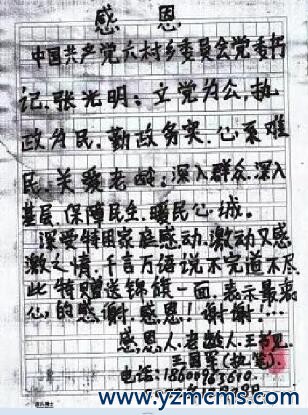 感恩
中国共产党六村乡委员会党委书
记,张光明:立党为公,执
政为民,勤政务实,心系难
民,关爱老龄;深入群众,深入
基层,保障民生,暖民心城。
深受特困家庭感动,激动又感
激之情,千言万语说不完道不尽
此特赠送锦旗一面,表示最衷
心的感谢,感恩!谢谢!…
感恩人:老龄人:王
王国军(执笔)
电话:18600963610.
www.yzmcms.com